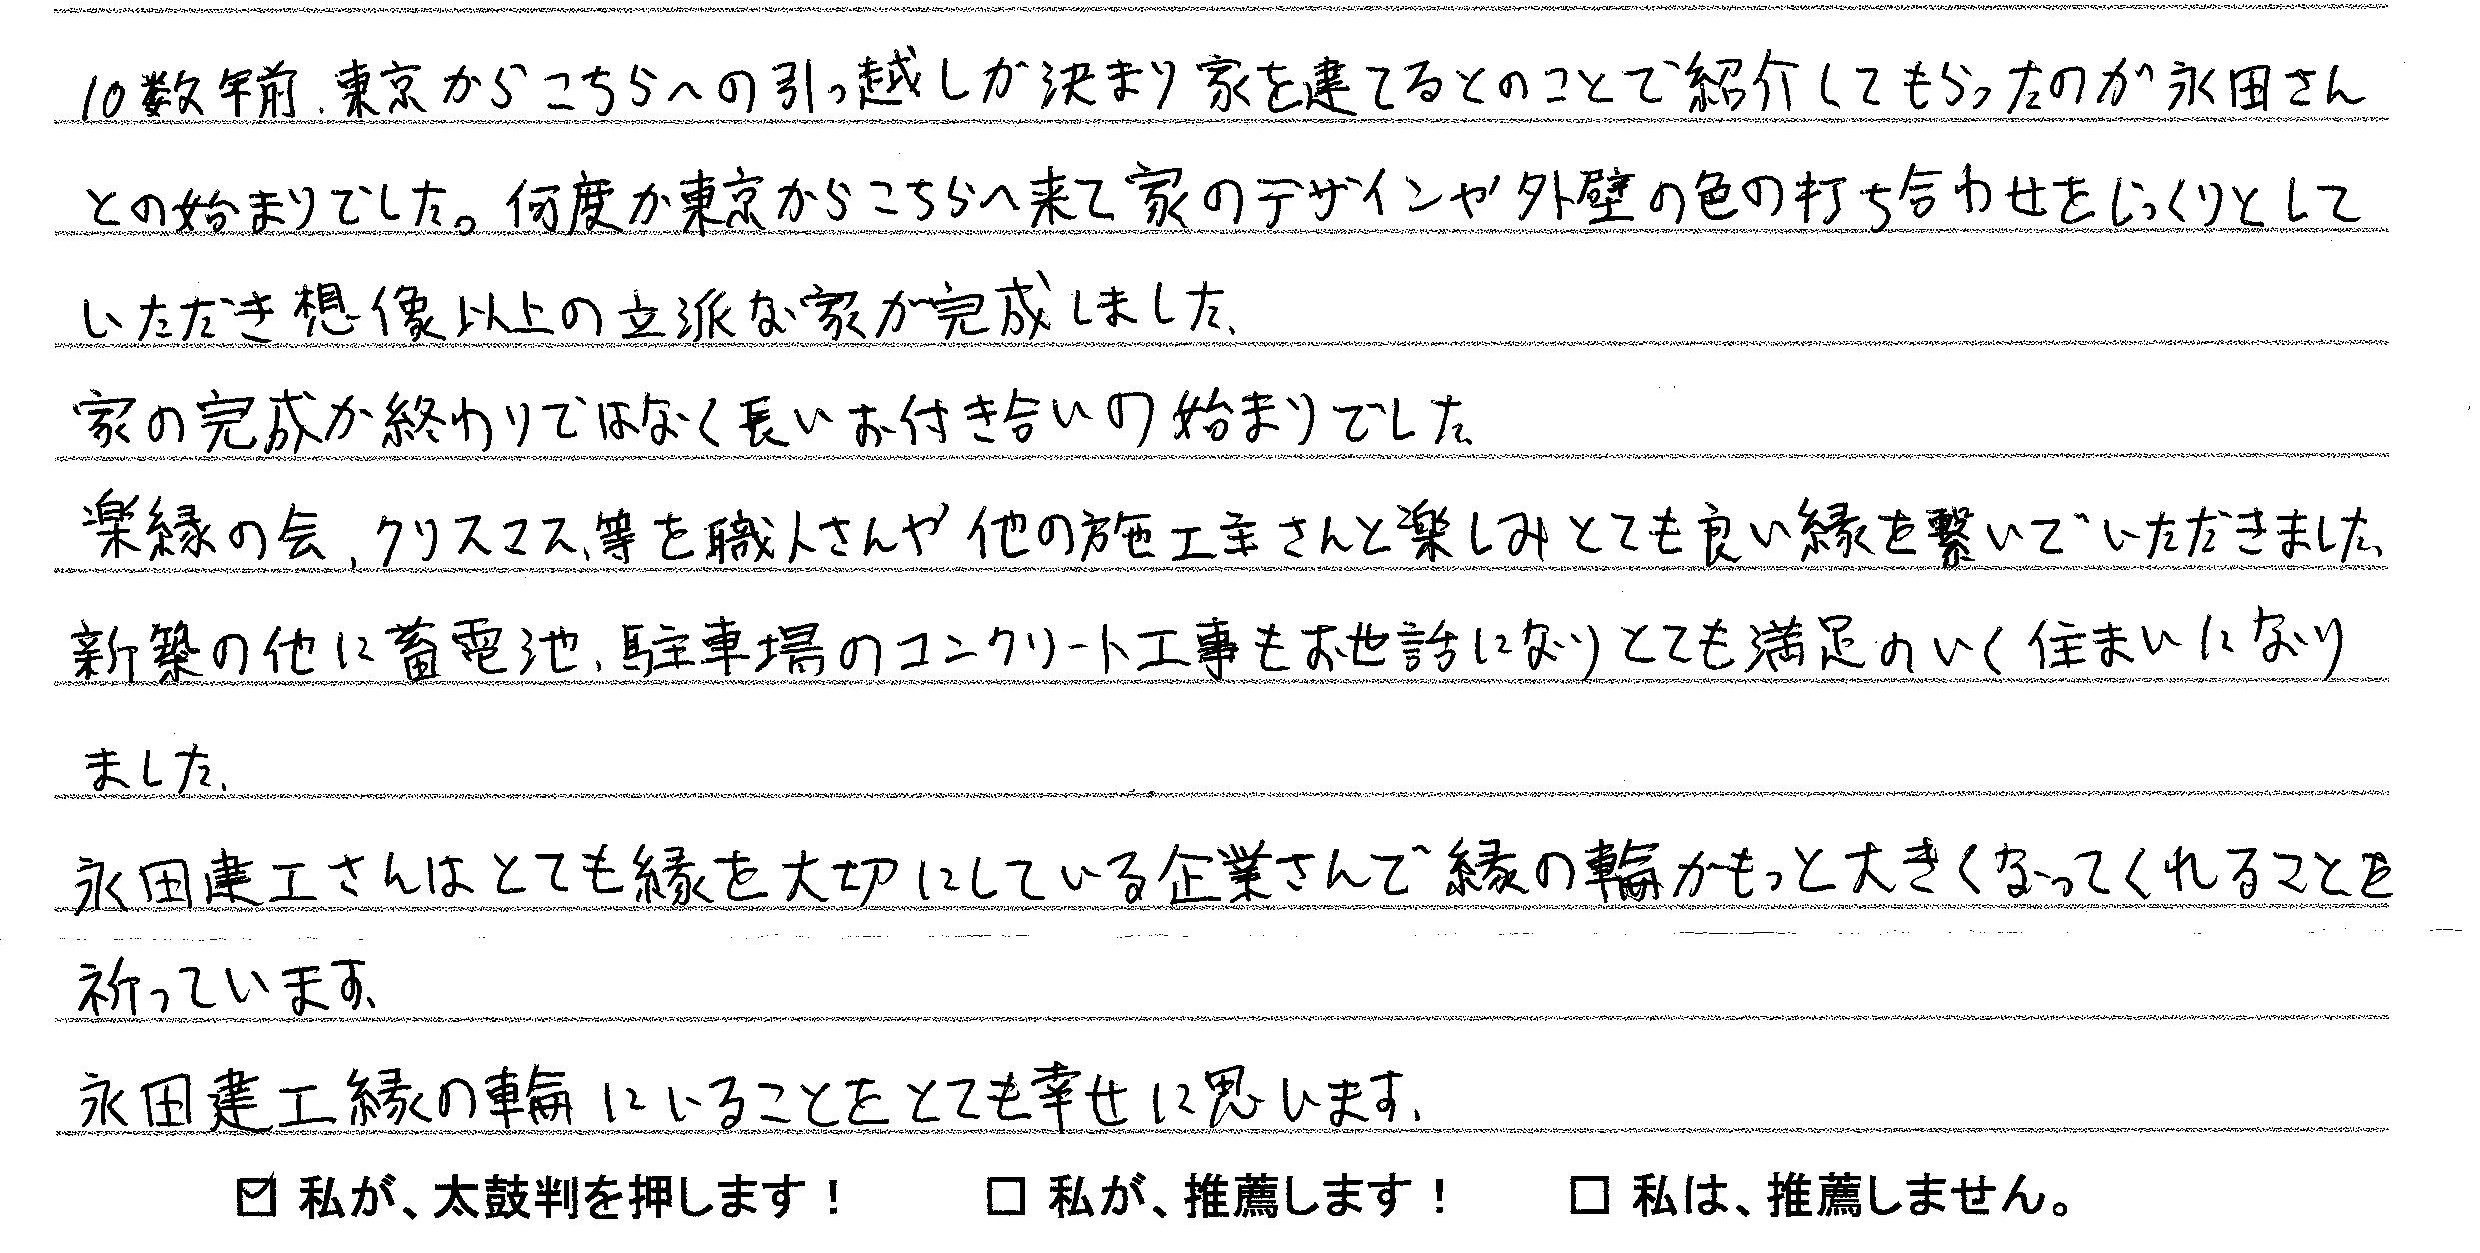 10数年前、東京からこちらへの引っ越しが決まり家を建てるとのことで紹介してもらったのが永田さん
との始まりでした。何度か東京からこちらへ来て家のデザインや外壁の色の打ち合わせをじっくりとして
いただき想像以上の立派な家が完成しました、
家の完成が終わりではなく長いお付き合いの始まりでした、
楽縁の会、クリスマス、等を職人さんや他の施工主さんと楽しみとても良い縁を繋いでいただきました、
新築の他に蓄電池、駐車場のコンクリート工事もお世話になりとても満足のいく住まいになり
ました、
永田建工さんはとても縁を大切にしている企業さんで縁の輪がもっと大きくなってくれることを
祈っています、
永田建工縁の輪にいることをとても幸せに思います、
☑ 私が、太鼓判を押します！ □ 私が、推薦します！ □ 私は、推薦しません。